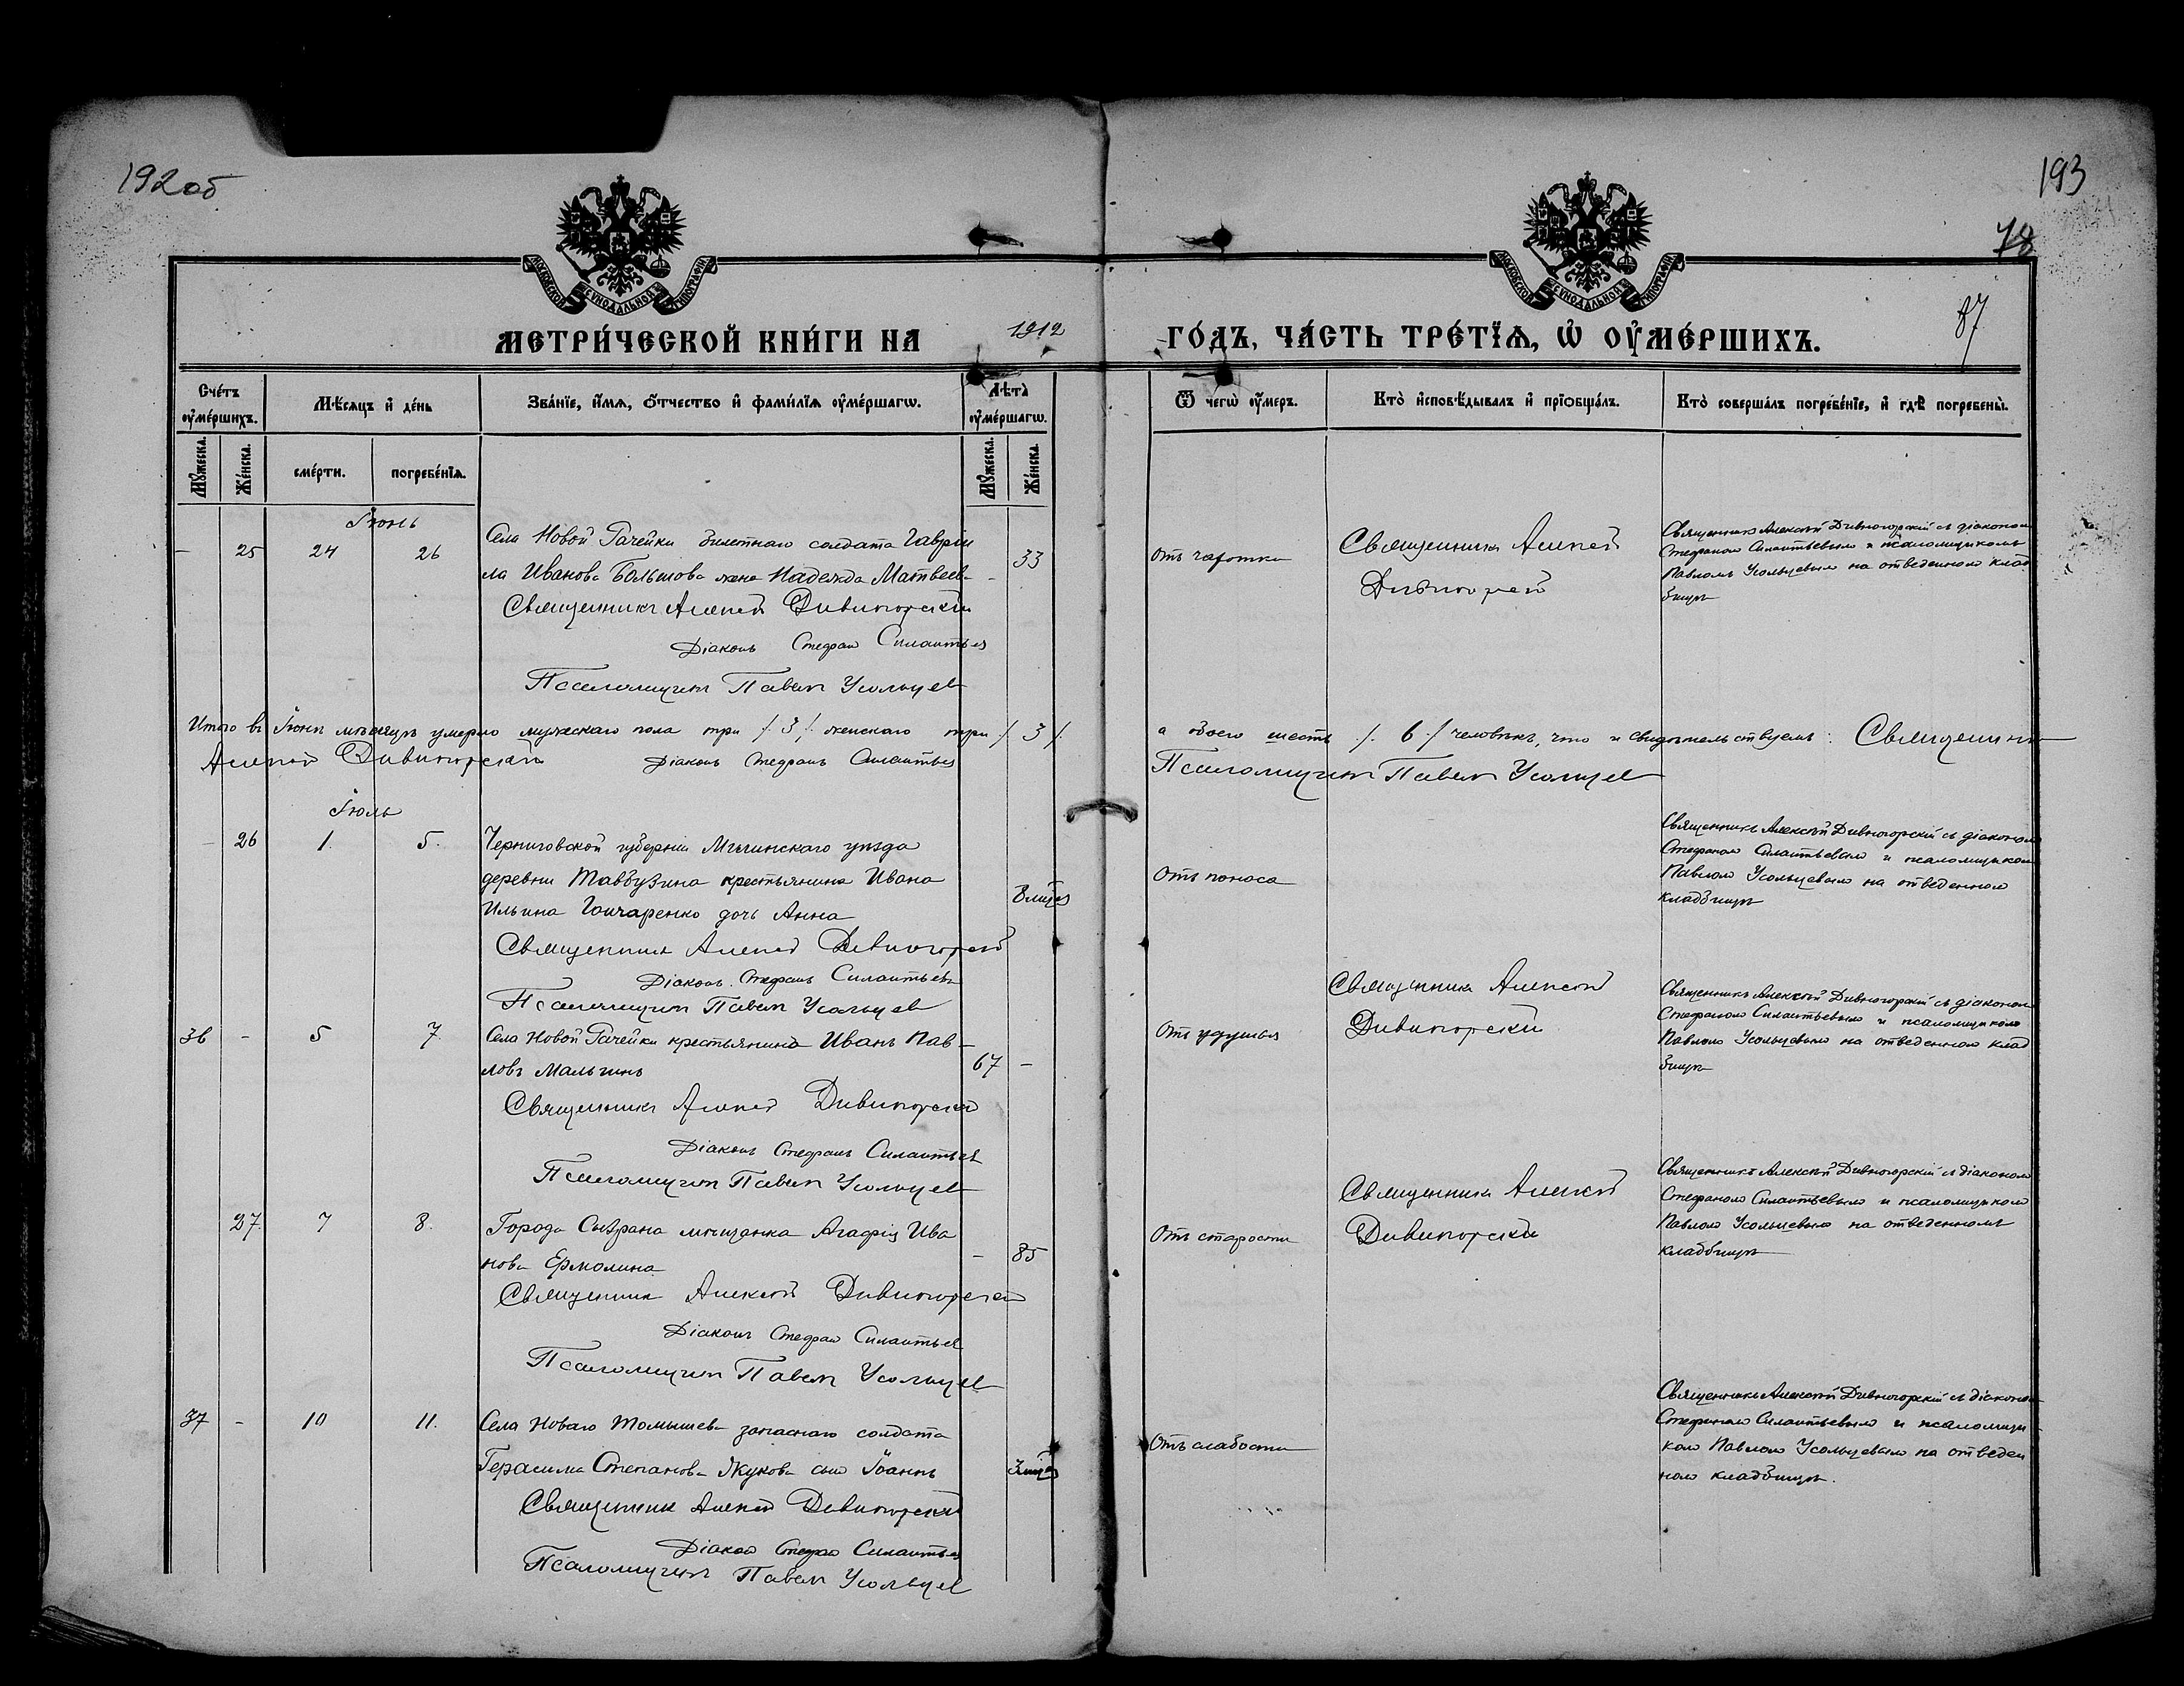 192об
193
78
87
МОСКОВСКОЙ СУНОДАЛЬНОЙ ТИПОГРАФІИ
МОСКОВСКОЙ СУНОДАЛЬНОЙ ТИПОГРАФІИ
МЕТРИ́ЧЕСКОЙ КНИ́ГИ НА 1912 ГО́ДЪ, ЧА́СТЬ ТРЕ́ТЇѦ, Ѡ҆ ОУ҆МЕ́РШИХЪ.
Сче́тъ оу҆ме́ршихъ.
Мѣ́сѧцъ и҆ де́нь
Зва́нїе, и҆́мѧ, ѻ҆́тчество и҆ фами́лїѧ оу҆ме́ршагѡ.
Лѣ́та̀ оу҆ме́ршагѡ.
Ѿ чегѡ̀ оу҆́меръ.
Кто̀ и҆сповѣ́дывалъ и҆ прїѻбща́лъ.
Кто̀ соверша́лъ погребе́нїе, и҆ гдѣ̀ погребены̀.
Мꙋ́жеска.
Же́нска.
сме́рти.
погребе́нїѧ.
Мꙋ́жеска.
Же́нска.
Іюнь
- 25 24 26 Села Новой Рачейки билетнаго солдата Гаврі
ила Иванова Большова жена Надежда Матвеева - 33
Священникъ Алексѣй Дивногорскій
Діаконъ Стефанъ Силантьев
Псаломщикъ Павел Усольцев
Отъ чахотки
Священникъ Алексей
Дивногорский
Священникъ Алексѣй Дивногорскій съ діакономъ
Стефаномъ Силантьевымъ и псаломщикомъ
Павломъ Усольцевымъ на отведенномъ клад
бищѣ
Итого въ Іюнѣ мѣсяцѣ умерло мужескаго пола три /3/ женскаго три /3/ а обоего шесть /6/ человѣкъ, что и свидѣтельствуемъ: Священникъ
Алексей Дивногорский Діаконъ Стефанъ Силантьев Псаломщикъ Павел Усольцев
Іюль
- 26 1. 5. Черниговской губерніи Мглинскаго уѣзда
деревни крестьянина Ивана
Ильина Гончаренко дочь Анна 8 мѣс
Священник Алексей Дивногорский
Діаконъ Стефанъ Силантьевъ
Псаломщикъ Павел Усольцев
Отъ поноса
Священникъ Алексѣй Дивногорскій съ діакономъ
Стефаномъ Силантьевымъ и псаломщикомъ
Павломъ Усольцевымъ на отведенномъ
кладбищѣ
36 - 5 7. Села Новой Рачейки крестьянинъ Иванъ Пав-
ловъ Мальгинъ 67 -
Священникъ Алексей Дивногорский
Діаконъ Стефанъ Силантьев
Псаломщикъ Павел Усольцев
Отъ удушья
Священник Алексей
Дивногорский
Священникъ Алексѣй Дивногорскій съ діакономъ
Стефаномъ Силантьевымъ и псаломщикомъ
Павломъ Усольцевымъ на отведенномъ клад
бищѣ
27. 7 8. Города Сызрана мѣщанка Агафія Ива
нова Ермолина - 85
Священник Алексей Дивногорский
Діаконъ Стефанъ Силантьев
Псаломщикъ Павел Усольцев
Отъ старости
Священник Алексей
Дивногорский
Священникъ Алексѣй Дивногорскій съ діакономъ
Стефаномъ Силантьевымъ и псаломщикомъ
Павломъ Усольцевымъ на отведенномъ
кладбищѣ
37 - 10 11. Села Новаго Томышева запаснаго солдата
Герасима Степанова Жукова сынъ Іоаннъ 3 мѣс
Священник Алексей Дивногорский
Діакон Стефан Силантьев
Псаломщикъ Павел Усольцев
Отъ слабости
Священникъ Алексѣй Дивногорскій съ діакономъ
Стефаномъ Силантьевымъ и псаломщи-
комъ Павломъ Усольцевымъ на отведен
номъ кладбищѣ.